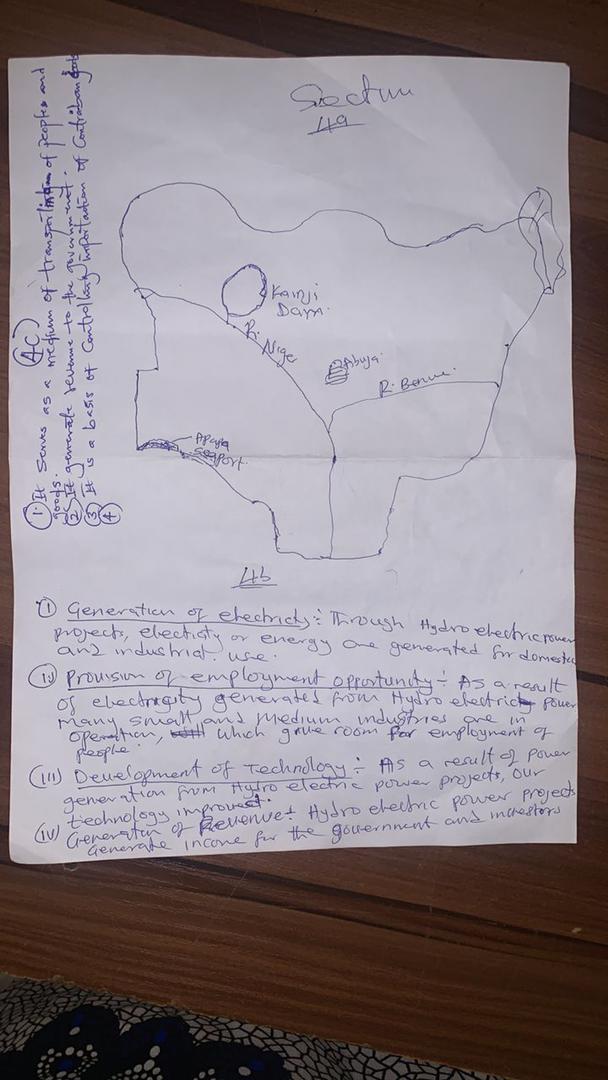 Section
4a
Kainji
Dam
R. Niger
Abuja
R. Benue
Apapa
Seaport
4b
(i) Generation of electricity:- Through Hydro electric power
projects, electicty or energy are generated for domestic
and industrial use.
(ii) Provision of employment opportunity:- As a result
of electricity generated from Hydro electric power
many small and medium industries are in
operation, which give room for employment of
people.
(iii) Development of Technology:- As a result of power
generation from Hydro electric power projects, our
technology improves.
(iv) Generation of Revenue:- Hydro electric power projects
Generate income for the government and investors
4c
(1) It serves as a medium of transportation of peoples and
goods.
(2) It generate revenue to the government.
(3) It is a basis of controlling importation of contraband goods
(4)